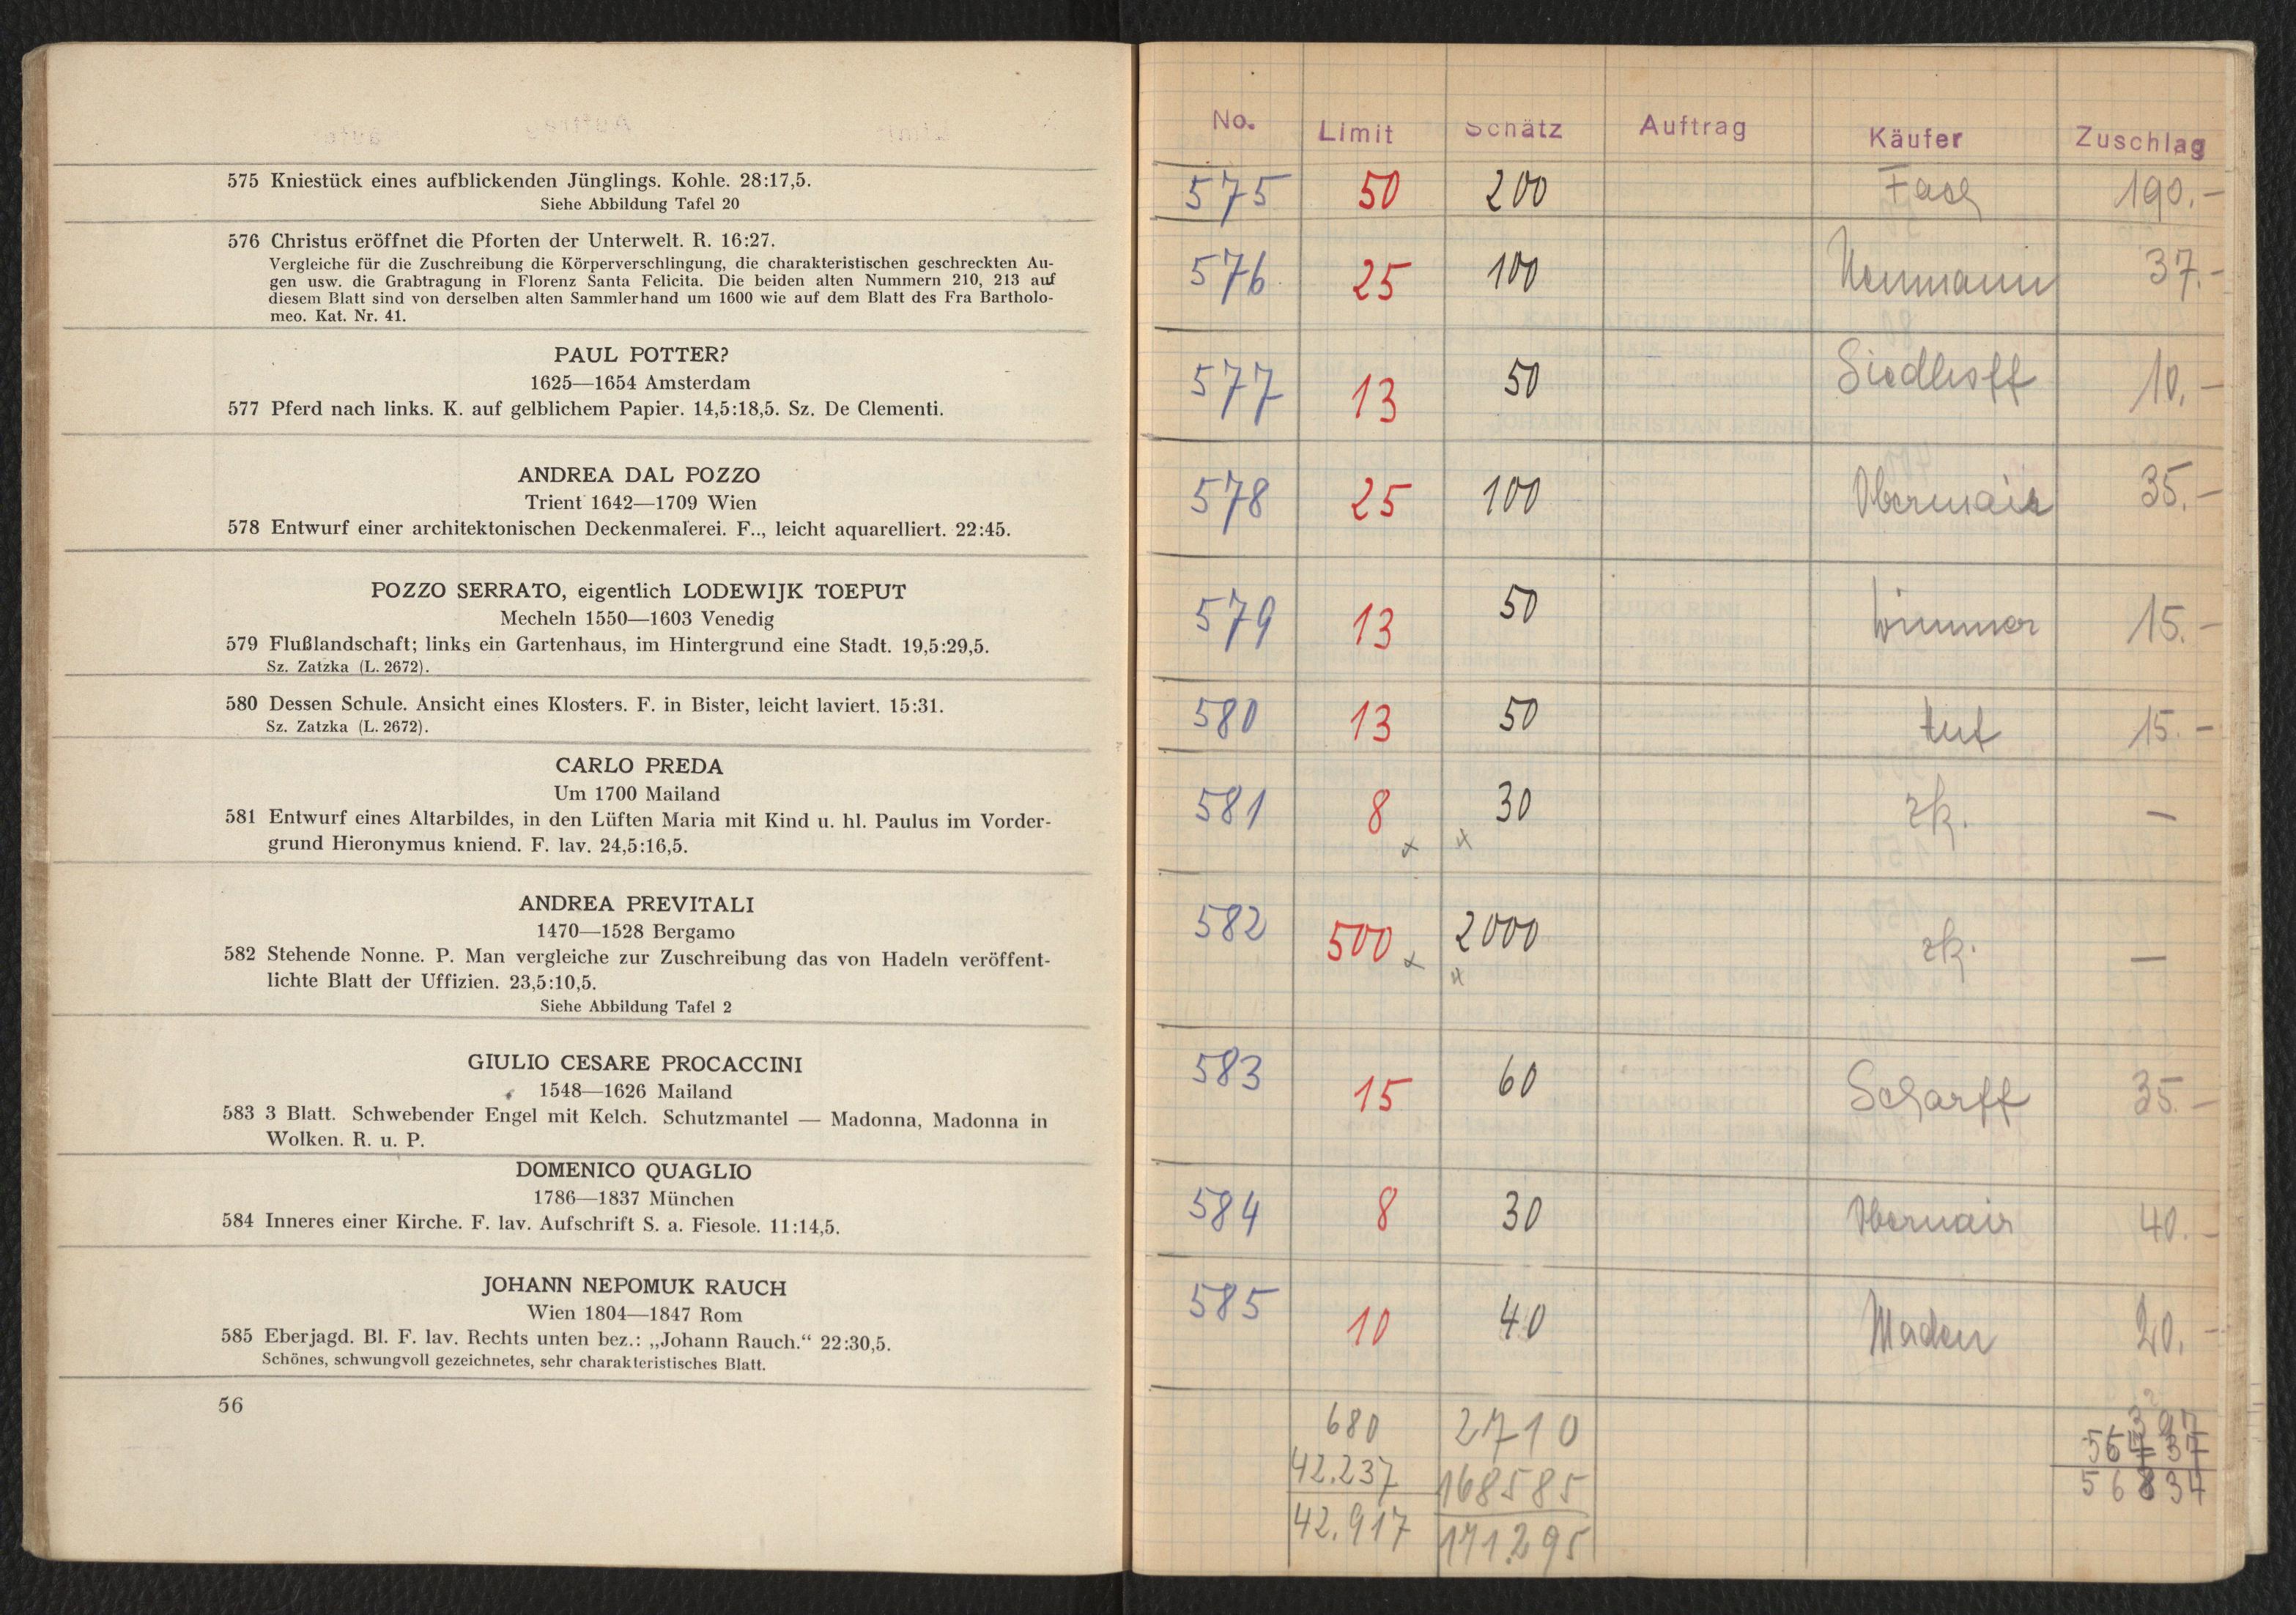 575 Kniestück eines aufblickenden Jünglings. Kohle. 28:17,5.
Siehe Abbildung Tafel 20
576 Christus eröffnet die Pforten der Unterwelt. R. 16:27.
Vergleiche für die Zuschreibung die Körperverschlingung, die charakteristischen geschreckten Au-
gen usw. die Grabtragung in Florenz Santa Felicita. Die beiden alten Nummern 210, 213 auf
diesem Blatt sind von derselben alten Sammlerhand um 1600 wie auf dem Blatt des Fra Bartholo-
meo. Kat. Nr. 41.
PAUL POTTER?
1625—1654 Amsterdam
577 Pferd nach links. K. auf gelblichem Papier. 14,5:18,5. Sz. De Clementi.
ANDREA DAL POZZO
Trient 1642—1709 Wien
578 Entwurf einer architektonischen Deckenmalerei. F.., leicht aquarelliert. 22:45.
POZZO SERRATO, eigentlich LODEWIJK TOEPUT
Mecheln 1550—1603 Venedig
579 Flußlandschaft; links ein Gartenhaus, im Hintergrund eine Stadt. 19,5:29,5.
Sz. Zatzka (L. 2672).
580 Dessen Schule. Ansicht eines Klosters. F. in Bister, leicht laviert. 15:31.
Sz. Zatzka (L. 2672).
CARLO PREDA
Um 1700 Mailand
581 Entwurf eines Altarbildes, in den Lüften Maria mit Kind u. hl. Paulus im Vorder-
grund Hieronymus kniend. F. lav. 24,5:16,5.
ANDREA PREVITALI
1470—1528 Bergamo
582 Stehende Nonne. P. Man vergleiche zur Zuschreibung das von Hadeln veröffent-
lichte Blatt der Uffizien. 23,5:10,5.
Siehe Abbildung Tafel 2
GIULIO CESARE PROCACCINI
1548—1626 Mailand
583 3 Blatt. Schwebender Engel mit Kelch. Schutzmantel — Madonna, Madonna in
Wolken. R. u. P.
DOMENICO QUAGLIO
1786—1837 München
584 Inneres einer Kirche. F. lav. Aufschrift S. a. Fiesole. 11:14,5.
JOHANN NEPOMUK RAUCH
Wien 1804—1847 Rom
585 Eberjagd. Bl. F. lav. Rechts unten bez.: „Johann Rauch.“ 22:30,5.
Schönes, schwungvoll gezeichnetes, sehr charakteristisches Blatt.
56
No. Limit Schätz Auftrag Käufer Zuschlag
575 50 200 Fach 190.-
576 25 100 Neumann 37.-
577 13 50 Siedlhoff 10.-
578 25 100 Obermair 35.-
579 13 50 Wimmer 15.-
580 13 50 15.-
581 8 x x 30 zk. —
582 500 x x 2000 zk. —
583 15 60 Scharff 35.-
584 8 30 Obermair 40.-
585 10 40 Maden 20.-
680 2710 397
42.237 168585 56437
42.917 171.295 56834